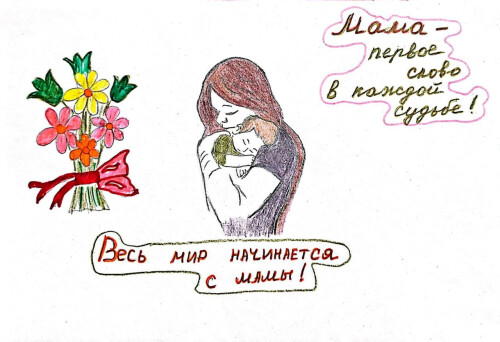 Мама -
первое
слово
в каждой
судьбе!
Весь мир начинается
с мамы!